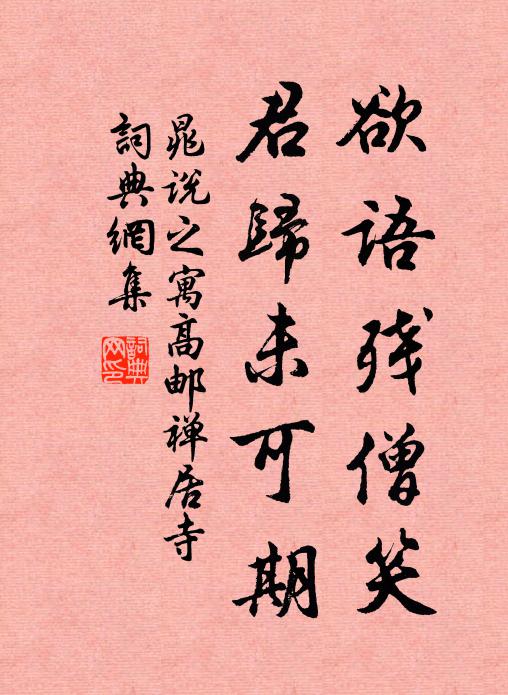 欲语残僧笑
君歸未可期
晁说之寓高邮禅居寺
詞典網集
詞典網印